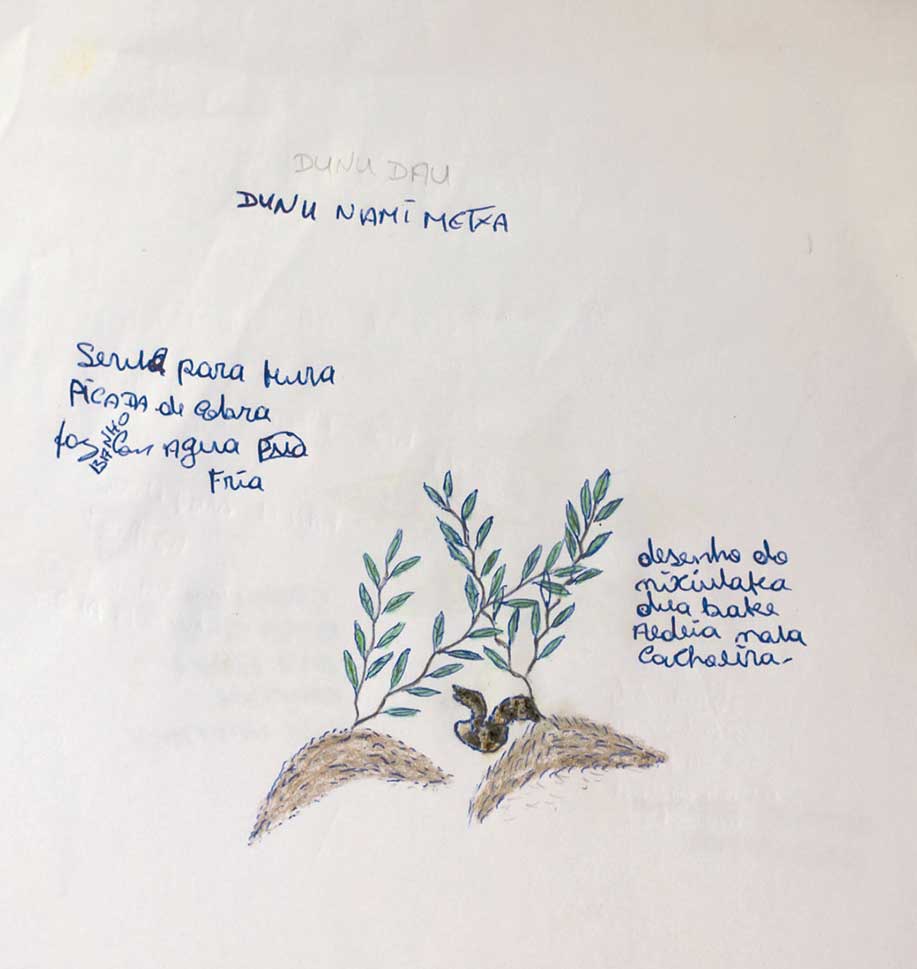 DUNU DAU
DUNU NAMĨ METXA
Serve para
PICADA de cobra
faz BANHO com AGUA
FRIA
desenho do
dua bake
Aldeia nala
Cachoeira-